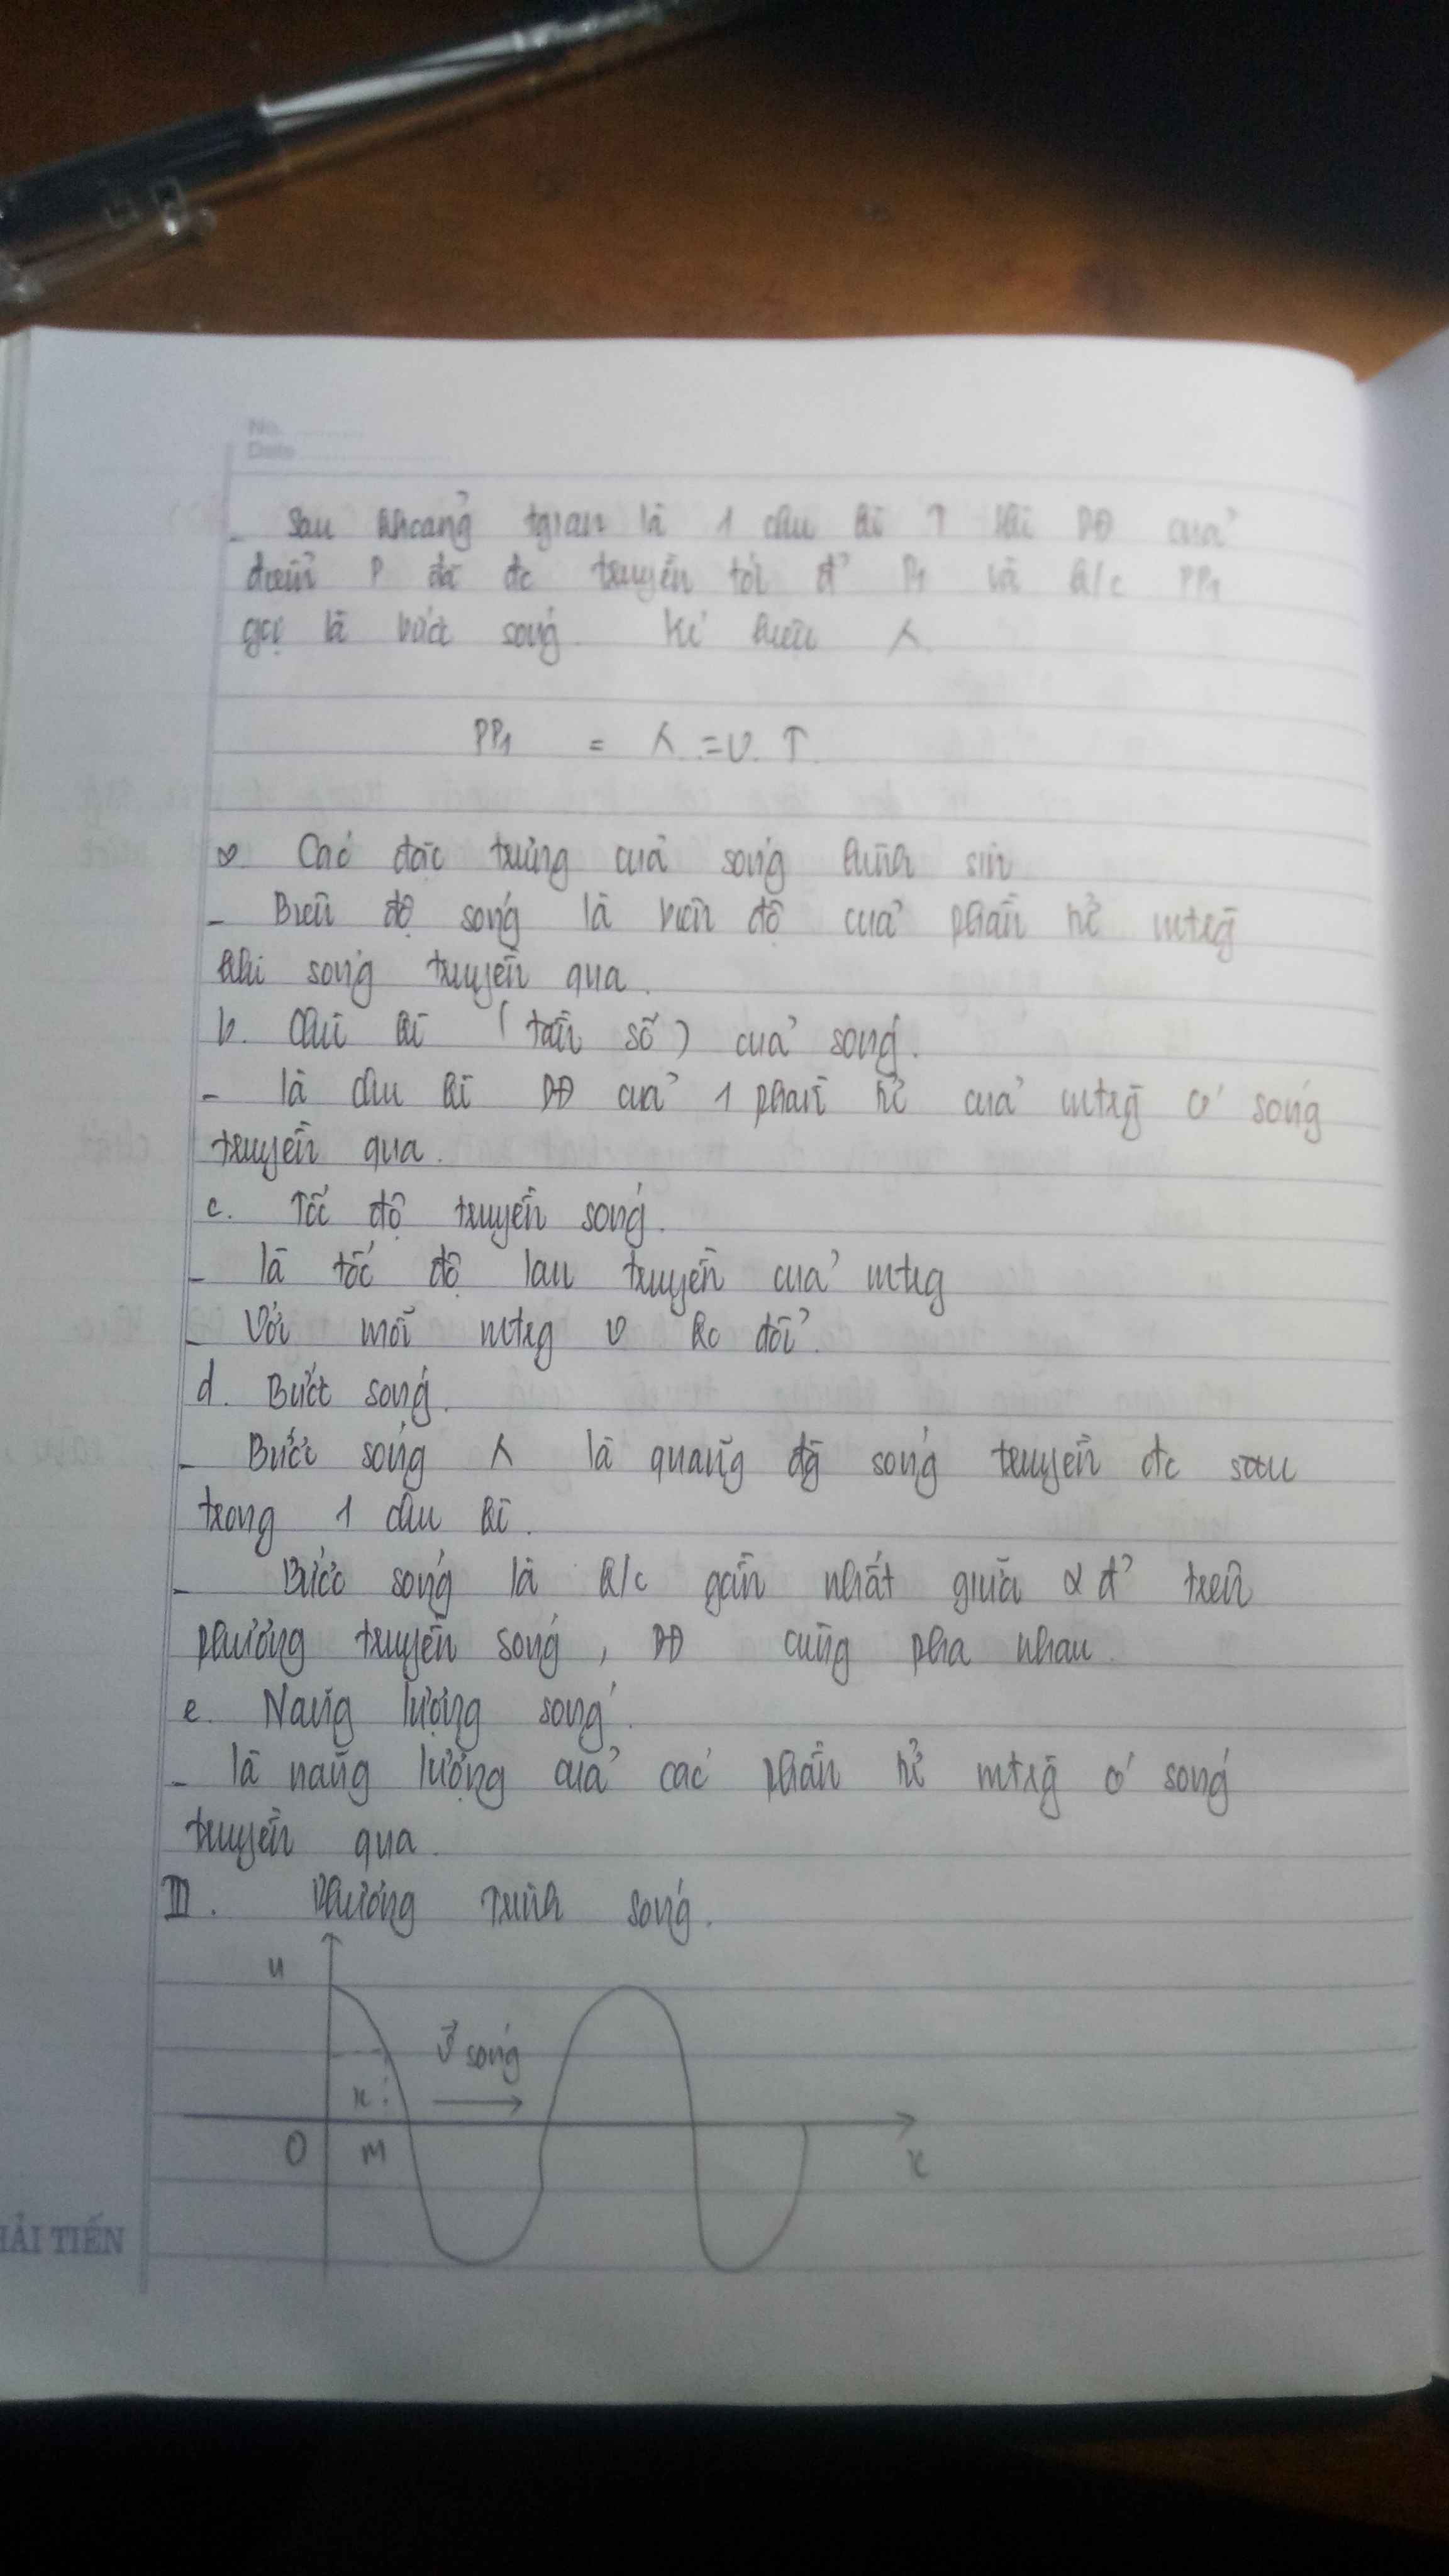 No.
Date
- Sau khoảng tgian là 1 chu kì T thì DĐ của
điểm P đã đc truyền tới đ' P1 và k/c PP1
gọi là bước sóng. Kí hiệu λ.
PP1 = λ = v.T
Các đặc trưng của sóng hình sin
- Biên độ sóng là biên độ của phần tử mtrg
khi sóng truyền qua.
b. Chu kì (tần số) của sóng.
- là chu kì DĐ của 1 phần tử của mtrg có sóng
truyền qua.
c. Tốc độ truyền sóng.
- là tốc độ lan truyền của mtrg
- Với mỗi mtrg v ko đổi.
d. Bước sóng.
- Bước sóng λ là quãng đg sóng truyền đc
trong 1 chu kì.
- Bước sóng là k/c gần nhất giữa 2 đ' trên
phương truyền sóng, DĐ cùng pha nhau.
e. Năng lượng sóng.
- là năng lượng của các phần tử mtrg có sóng
truyền qua.
III. Phương trình sóng.
u
v⃗ sóng
x
O M x
HẢI TIẾN